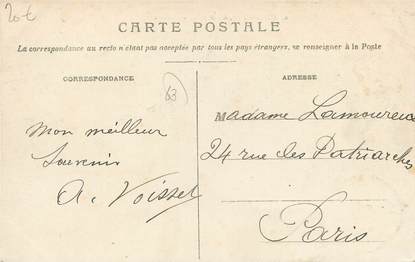 20€
CARTE POSTALE
La correspondance au recto n'étant pas acceptée par tous les pays étrangers, se renseigner à la Poste
CORRESPONDANCE
ADRESSE
63
Mon meilleur
Souvenir
A. Voisset
Madame Lamoureux
24 rue des Patriarches
Paris